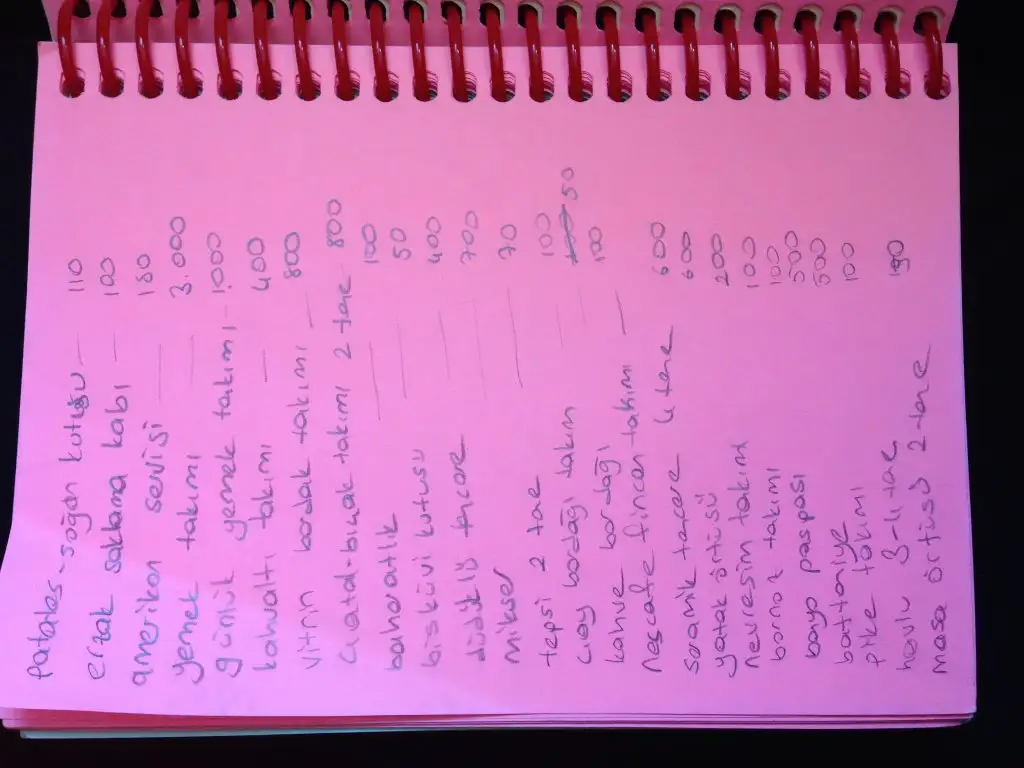 Patates-soğan kutuğu — 110
erzak saklama kabı — 100
amerikan servisi — 180
yemek takımı — 3.000
günlük yemek takımı - 1.000
kahvaltı takımı — 400
vitrin bardak takımı — 800
çatal-bıçak takımı 2 tane - 800
baharatlık — 100
bisküvi kutusu — 50
düdüklü tencere — 400
mikser — 700
tepsi 2 tane — 70
çay bardağı takım — 100
kahve bardağı — 50
nescafe fincan takımı — 100
seramik tencere 4 tane 600
yatak örtüsü 600
nevresim takımı 200
bornoz takımı 100
banyo paspası 100
battaniye 500
pike takımı 500
havlu 3-4 tane 100
masa örtüsü 2 tane